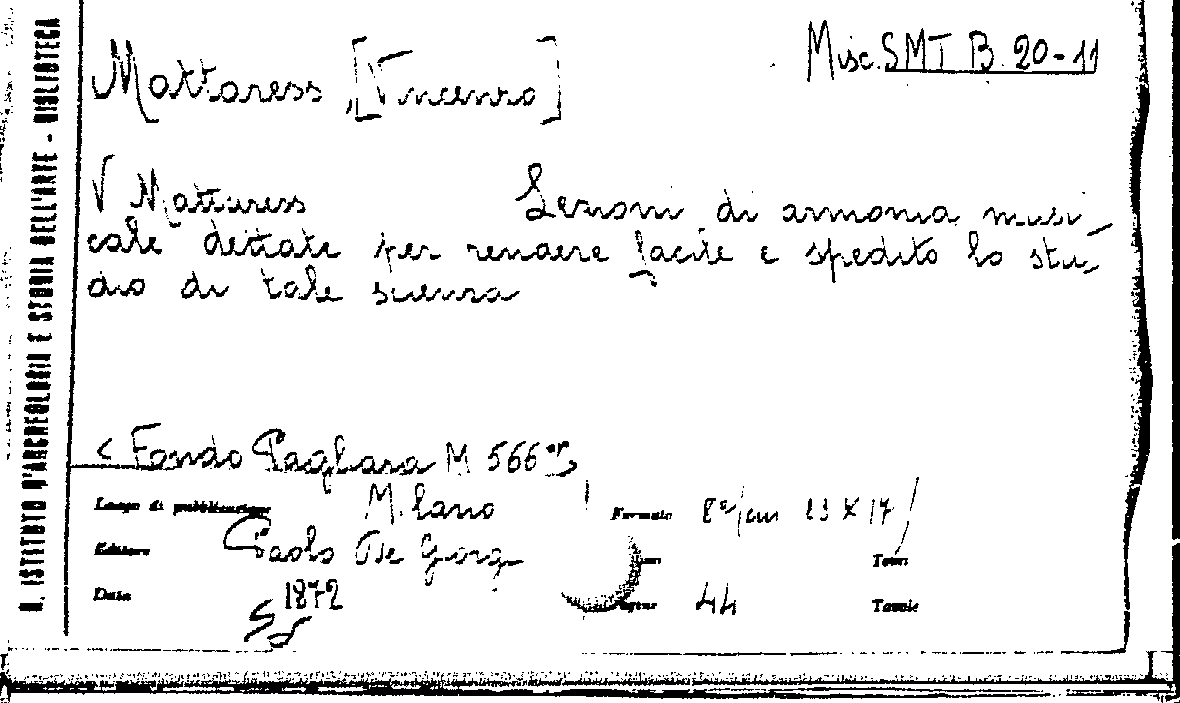 R. ISTITUTO D'ARCHEOLOGIA E STORIA DELL'ARTE - BIBLIOTECA
Mattaress [Vincenzo]
Misc. SMT B. 20-11
V Mattaress Lezioni di armonia musi-
cale dettate per rendere facile e spedito lo stu-
dio di tale scienza
< Fondo Pagliara M 566
Luogo di pubblicazione Milano
Formato 8°/cm 23 X 17
Editore Paolo De Giorgi
Tomi
Data 1872
Pagine 44
Tavole